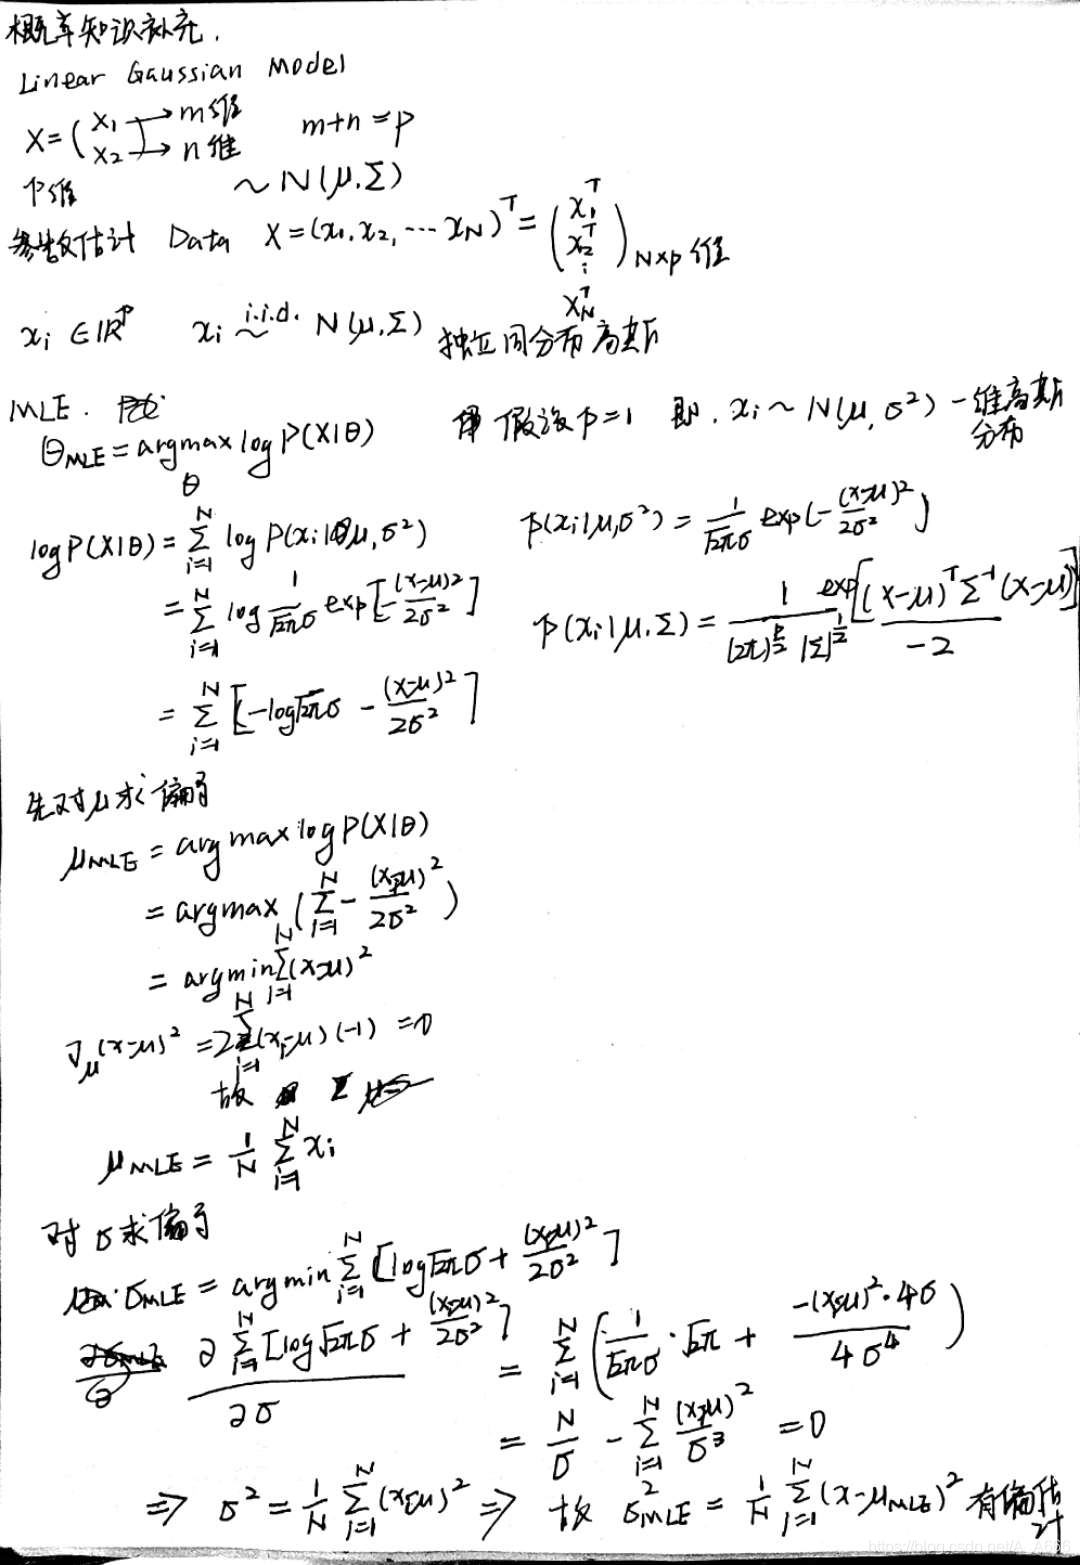 概率知识补充.
Linear Gaussian Model
X=(x₁ x₂) → m维 → n维 m+n=p
p维 ~N(μ.Σ)
参数估计 Data X=(x₁,x₂,⋯x_N)ᵀ=(x₁ᵀ x₂ᵀ ⋮ x_Nᵀ)_{N×p维}
x_i∈ℝᵖ x_i i.i.d. ~ N(μ,Σ) 独立同分布高斯
MLE. 假设p=1 即. x_i~N(μ,σ²) 一维高斯分布
θ_MLE=argmax_θ logP(X|θ)
logP(X|θ)=∑_{i=1}^N logP(x_i|μ,σ²) p(x_i|μ,σ²)=1/(√2π σ) exp(-(x-μ)²/2σ²)
=∑_{i=1}^N log 1/(√2π σ) exp[-(x-μ)²/2σ²] p(x_i|μ.Σ)=1/((2π)^{p/2}|Σ|^{1/2}) exp[(x-μ)ᵀΣ⁻¹(x-μ)/-2]
=∑_{i=1}^N[-log√2π σ-(x-μ)²/2σ²]
先对μ求偏导
μ_MLE=argmax logP(X|θ)
=argmax(∑_{i=1}^N-(x_i-μ)²/2σ²)
=argmin∑_{i=1}^N(x-μ)²
∇_μ(x-μ)²=2∑_{i=1}^N(x_i-μ)(-1)=0
故
μ_MLE=1/N ∑_{i=1}^N x_i
对σ求偏导
σ_MLE=argmin∑_{i=1}^N[log√2π σ+(x_i-μ)²/2σ²]
∂∑_{i=1}^N[log√2π σ+(x_i-μ)²/2σ²]/∂σ=∑_{i=1}^N(1/(√2π σ)·√2π+(-(x_i-μ)²·4σ)/4σ⁴)
=N/σ-∑_{i=1}^N(x_i-μ)²/σ³=0
⇒ σ²=1/N ∑_{i=1}^N(x_i-μ)² ⇒ 故 σ²_MLE=1/N ∑_{i=1}^N(x-μ_MLE)² 有偏估计